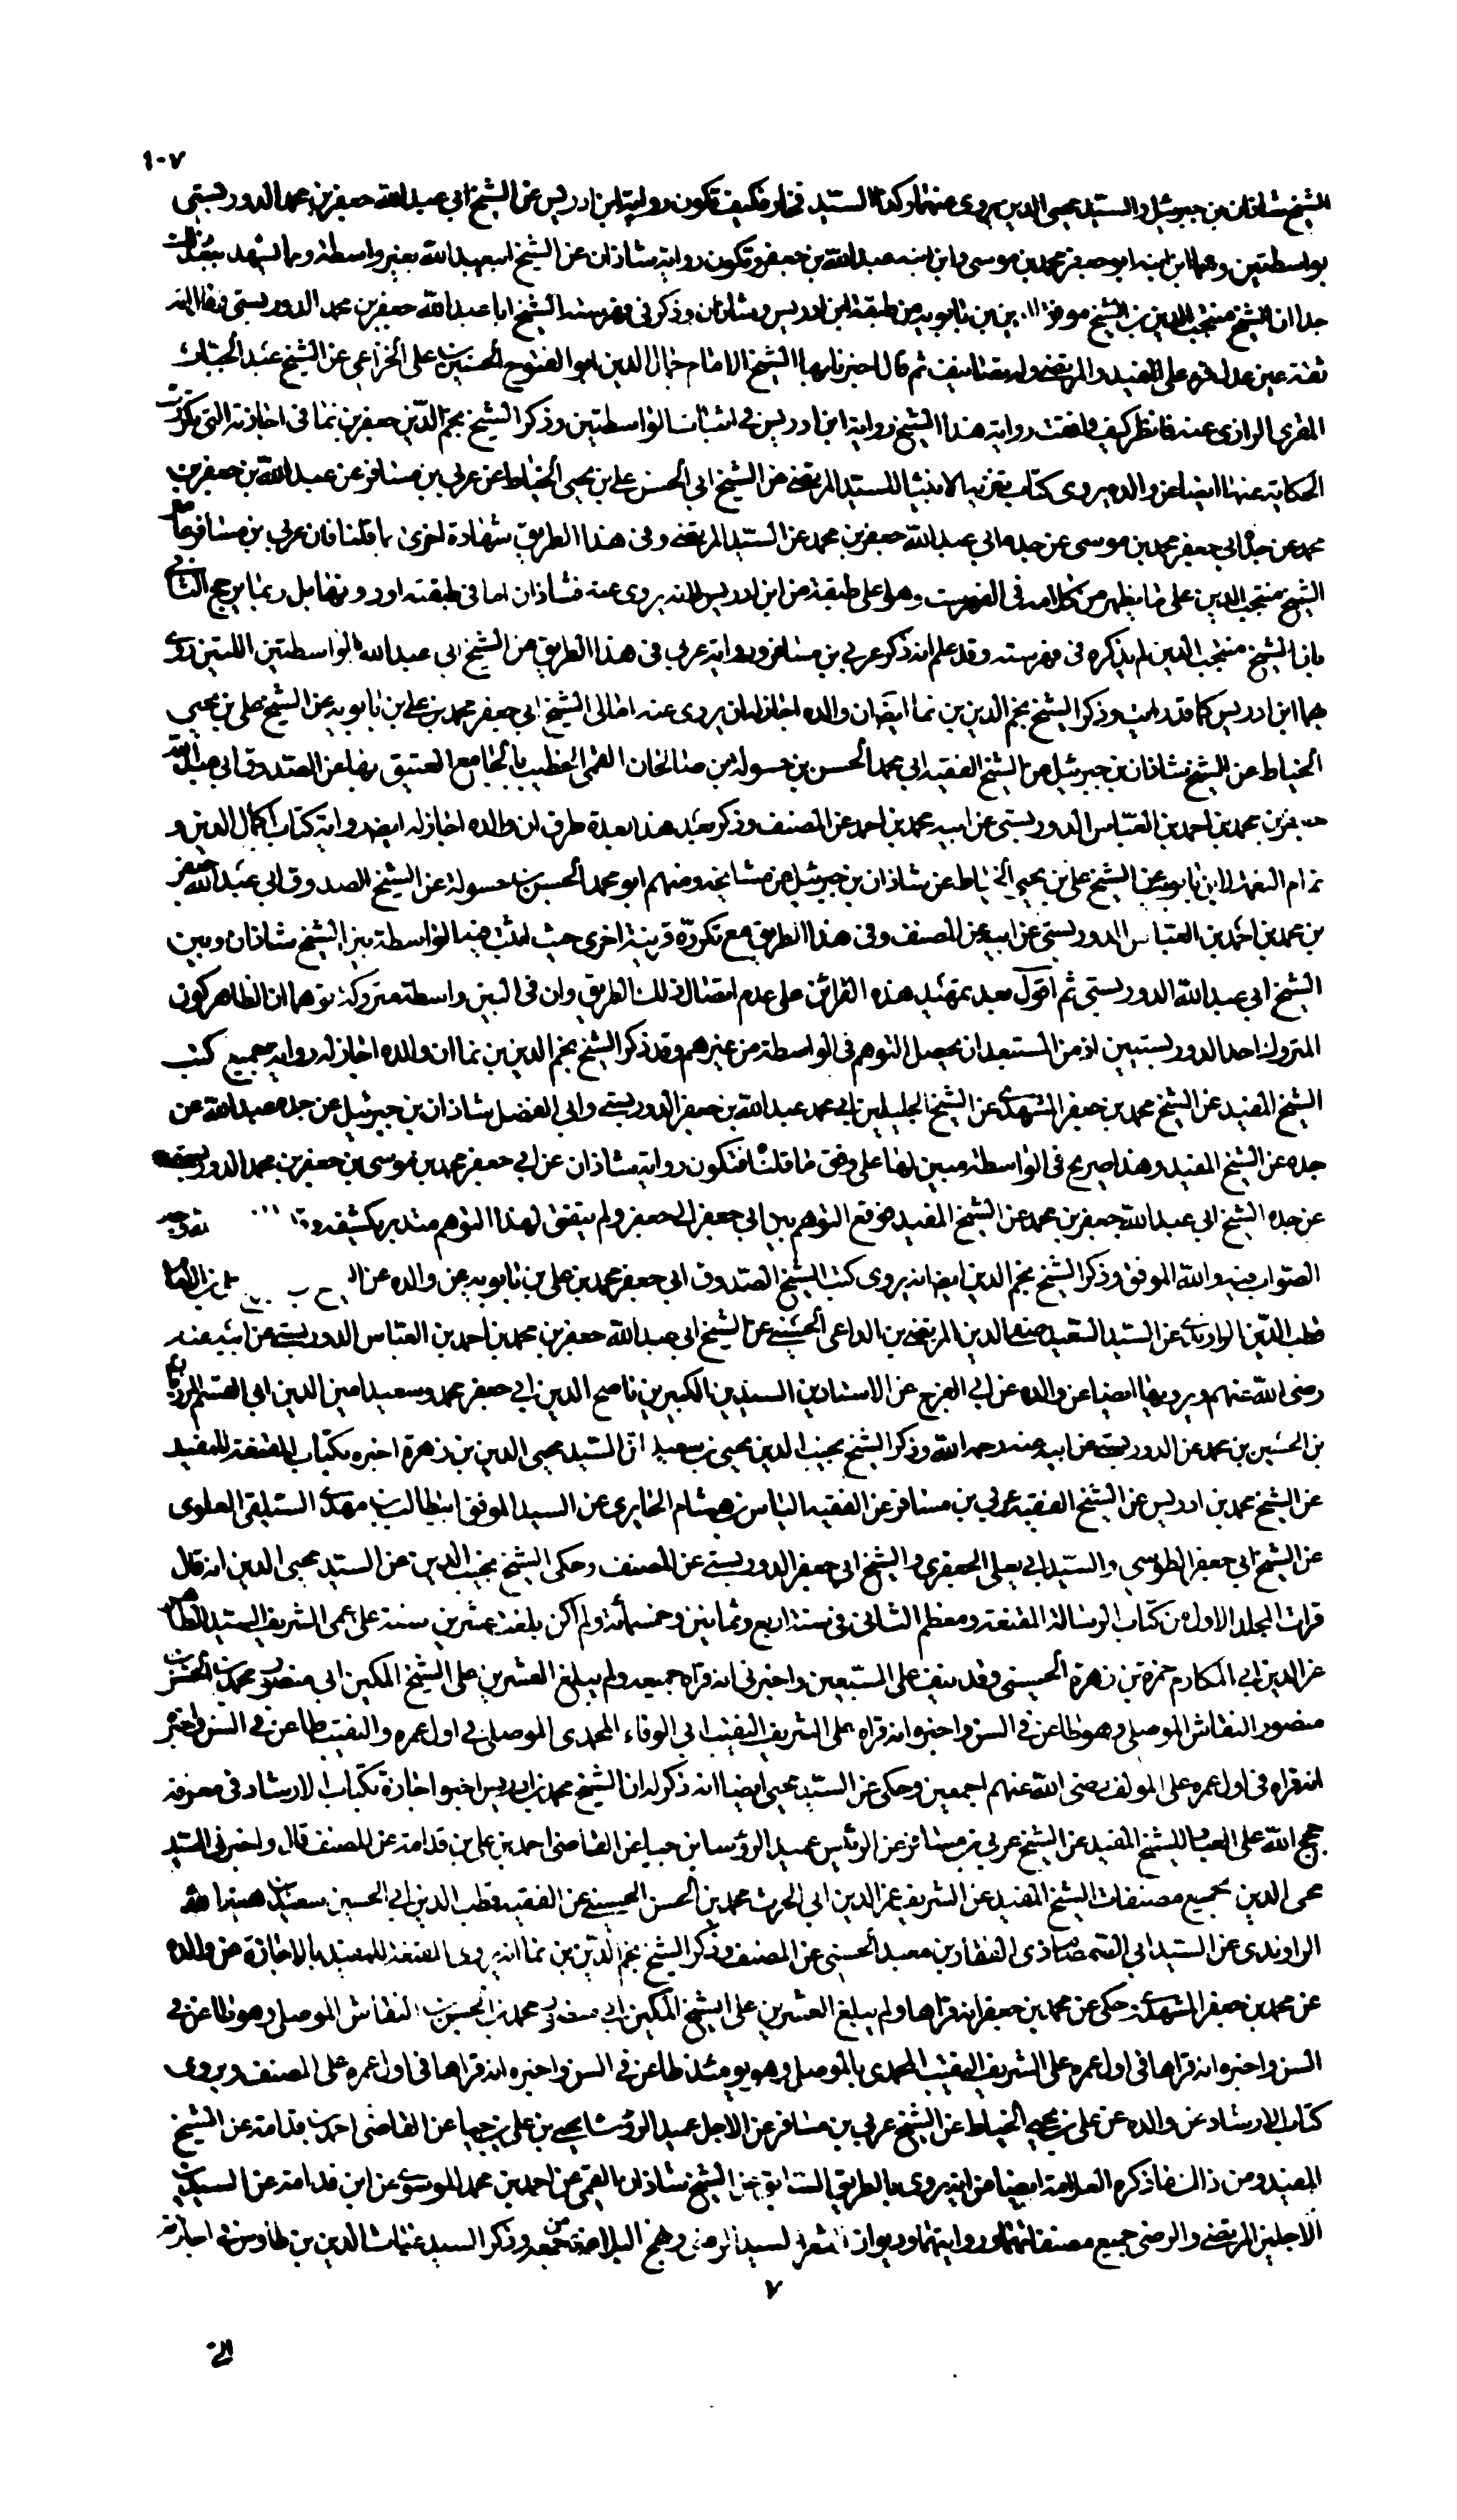 ١٠٧
الشيخ شاذان بن جبرئيل والسيد محيى الدين يروى عنهما وكذا السيد فخار فكيف تكون رواية ابن ادريس عن الشيخ ابى عبد الله جعفر بن محمد الدوريستى
بواسطتين وهما ابن ابنه ابو جعفر محمد بن موسى وابن ابنه عبد الله بن جعفر وتكون رواية شاذان عن الشيخ ابى عبد الله بغير واسطة ومما يشهد ببعد ذلك
جدا ان الشيخ منتجب الدين بن الشيخ موفق الدين بن بابويه من طبقة ابن ادريس وشاذان وذكر فى فهرسته الشيخ ابا عبد الله جعفر بن محمد الدوريستى وقال انه
ثقة عين عدل قرء على المفيد والمرتضى وله تصانيف ثم قال اخبرنا بها الشيخ الامام جمال الدين ابو الفتوح الحسين بن على الخزاعى عن الشيخ عبد الجبار
المقرى الرازى عنه فانظر كيف وافقت رواية هذا الشيخ رواية ابن ادريس فى اثبات الواسطتين وذكر الشيخ نجم الدين جعفر بن نما فى اجازته التى تكررت
الحكاية عنها ايضا عن والده يروى كتاب تنزيه الانبياء للسيد المرتضى عن الشيخ ابى الحسن على بن يحيى الخياط عن عربى بن مسافر عن عبد الله بن جعفر بن
محمد عن جده ابى جعفر محمد بن موسى عن جده ابى عبد الله جعفر بن محمد عن السيد المرتضى وفى هذا الطريق شهادة اخرى بما قلنا فان عربى بن مسافر
الشيخ منتجب الدين على ما يظهر من كلامه فى الفهرست وهو اعلى طبقة من ابن ادريس لانه يروى عنه فشاذان اما فى طبقته او دونها بل ربما يرجح الثانى
بان الشيخ منتجب الدين لم يذكره فى فهرسته وقد علم انه ذكر عربى بن مسافر ورواية عربى فى هذا الطريق عن الشيخ ابى عبد الله بالواسطتين اللتين روى
بهما ابن ادريس كما قد رايت وذكر الشيخ نجم الدين بن نما ايضا ان والده اجاز له ان يروى عنه امالى الشيخ ابى جعفر محمد بن على بن بابويه عن الشيخ على بن يحيى
الخياط عن الشيخ شاذان بن جبرئيل عن الشيخ الفقيه ابى محمد الحسن بن حسولة بن صالحان القمى الخطيب بالجامع العتيق بها عن الصدوق ابى عبد الله
جعفر بن محمد بن احمد بن العباس الدوريستى عن ابيه محمد بن احمد عن المصنف وذكر بعد هذا بعدة طرق ان والده اجاز له ايضا رواية كتاب اكمال الدين و
تمام النعمة لابن بابويه عن الشيخ على بن يحيى الخياط عن شاذان بن جبرئيل عن مشايخه ومنهم ابو محمد الحسن بن حسولة عن الشيخ الصدوق ابى عبد الله جعفر
بن محمد بن احمد بن العباس الدوريستى عن ابيه عن المصنف وفى هذا الطريق مع تكرره قرينة اخرى حيث اثبت فيه الواسطة بين الشيخ شاذان وبين
الشيخ ابى عبد الله الدوريستى ثم اقول بعد تمهيد هذه القرائن على عدم اتصال ذلك الطريق وان فى البين واسطة متروكة توهما ان الظاهر كون
المتروك احد الدوريستيين اذ من المستبعد ان يحصل التوهم فى الواسطة من غيرهم وقد ذكر الشيخ نجم الدين بن نما ان والده اجاز له رواية جميع كتب
الشيخ المفيد عن الشيخ محمد بن جعفر المشهدى عن الشيخين الجليلين ابى محمد عبد الله بن جعفر الدوريستى وابى الفضل شاذان بن جبرئيل عن جده عبد الله عن
جده عن الشيخ المفيد وهذا صريح فى الواسطة مبين لها على وفق ما قلناه فتكون رواية شاذان عن ابى جعفر محمد بن موسى بن جعفر بن محمد الدوريستى
عن جده الشيخ ابى عبد الله جعفر بن محمد عن الشيخ المفيد فوقع التوهم بين ابى جعفر الى جعفر ولم يتفق لهذا التوهم متدبر يكشفه
الصواب فيه والله الموفق وذكر الشيخ نجم الدين ايضا انه يروى كتب الشيخ الصدوق ابى جعفر محمد بن على بن بابويه عن والده عن
قطب الدين الراوندى عن السيد السعيد صفى الدين المرتضى بن الداعى الحسينى عن الشيخ ابى عبد الله جعفر بن محمد بن احمد بن العباس الدوريستى عن ابيه عنه
رضى الله عنهم ويرويها ايضا عن والده عن ابى الفرج عن الاستاذين السيدين الكبيرين ناصح الدين ابى جعفر محمد وسعيد امين الدين ابى القسم المرزبان
بن الحسين بن محمد عن الدوريستى عن ابيه عنه رحمه الله وذكر الشيخ نجيب الدين يحيى بن سعيد ان السيد محيى الدين بن زهرة اخبره بكتاب المقنعة للمفيد
عن الشيخ محمد بن ادريس عن الشيخ الفقيه عربى بن مسافر عن الفقيه الياس بن هشام الحايرى عن السيد الموفق ابى طالب بن مهدى السليقى العلوى
عن الشيخ ابى جعفر الطوسى والسيد ابى يعلى الجعفرى والشيخ ابى جعفر الدوريستى عن المصنف وحكى الشيخ نجيب الدين عن السيد محيى الدين انه قال
قرات المجلد الاول من كتاب الرسالة المقنعة ومعظم الثانى فى سنة اربع وثمانين وخمسمائة ولم اكن بلغت عشرين سنة على عمى الشريف السيد الطاهر
عز الدين ابى المكارم حمزة بن زهرة الحسينى وقد نيف على السبعين واخبرنى انه قراه جميعه ولم يبلغ العشرين على الشيخ المكين ابى منصور محمد بن الحسن بن
منصور النقاش الموصلى وهو طاعن فى السن واخبره انه قراه على الشريف النقيب ابى الوفاء المحمدى الموصلى فى اول عمره والنقيب طاعن فى السن واخبره
انه قراه فى اول عمره على المؤلف رضى الله عنهم اجمعين وحكى عن السيد محيى ايضا انه ذكر له ان الشيخ محمد بن ادريس اخبره اجازة بكتاب الارشاد فى معرفة
حجج الله على العباد للشيخ المفيد عن الشيخ عربى بن مسافر عن الرئيس عميد الرؤسا بن حيا عن القاضى احمد بن على بن قدامة عن المصنف قال واخبرنى السيد
محى الدين بجميع مصنفات الشيخ المفيد عن الشريف عز الدين ابى الحرث محمد بن الحسن الحسينى عن الفقيه قطب الدين ابى الحسين سعيد بن هبة الله
الراوندى عن السيد ابى الصمصام ذى الفقار بن معبد الحسنى عن المصنف وذكر الشيخ نجم الدين بن نما انه يروى المقنعة للمفيد بالاجازة عن والده
عن محمد بن جعفر المشهدى وحكى عن محمد بن جعفر انه قراها ولم يبلغ العشرين على الشيخ المكين ابى منصور محمد بن الحسن بن النقاش الموصلى وهو طاعن فى
السن واخبره انه قراها فى اول عمره على الشريف النقيب المحمدى بالموصل وهو يومئذ طاعن فى السن واخبره انه قراها فى اول عمره على المصنف ويروى
كتاب الارشاد عن والده عن على بن يحيى الخياط عن الشيخ عربى بن مسافر عن الاجل عميد الرؤسا يحيى بن على بن حيا عن القاضى احمد بن قدامة عن الشيخ
المفيد ومن ذلك ما ذكره العلامة ايضا من انه يروى بالطريق السابق عن الشيخ شاذان القمى عن احمد بن محمد الموسوى عن ابن قدامة عن السيدين
الاجلين المرتضى والرضى جميع مصنفاتهما ورواياتهما وديوان شعر السيد الرضى ونهج البلاغة من جمعه وذكر السيد غياث الدين بن طاوس فى اجازته
٧